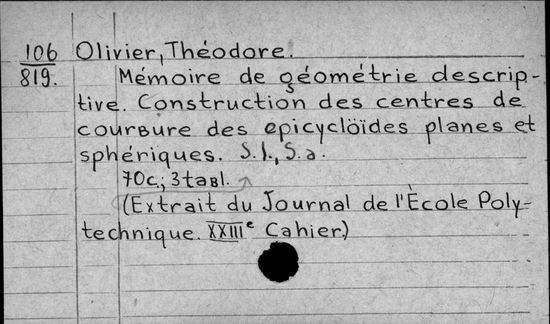 106 Olivier, Théodore.
819. Mémoire de géométrie descrip-
tive. Construction des centres de
courвure des epicycloïdes planes et
sphériques. S.l., S.a.
70c.; 3taвl.
(Extrait du Journal de l'École Poly-
technique. XXIIIe Cahier.)